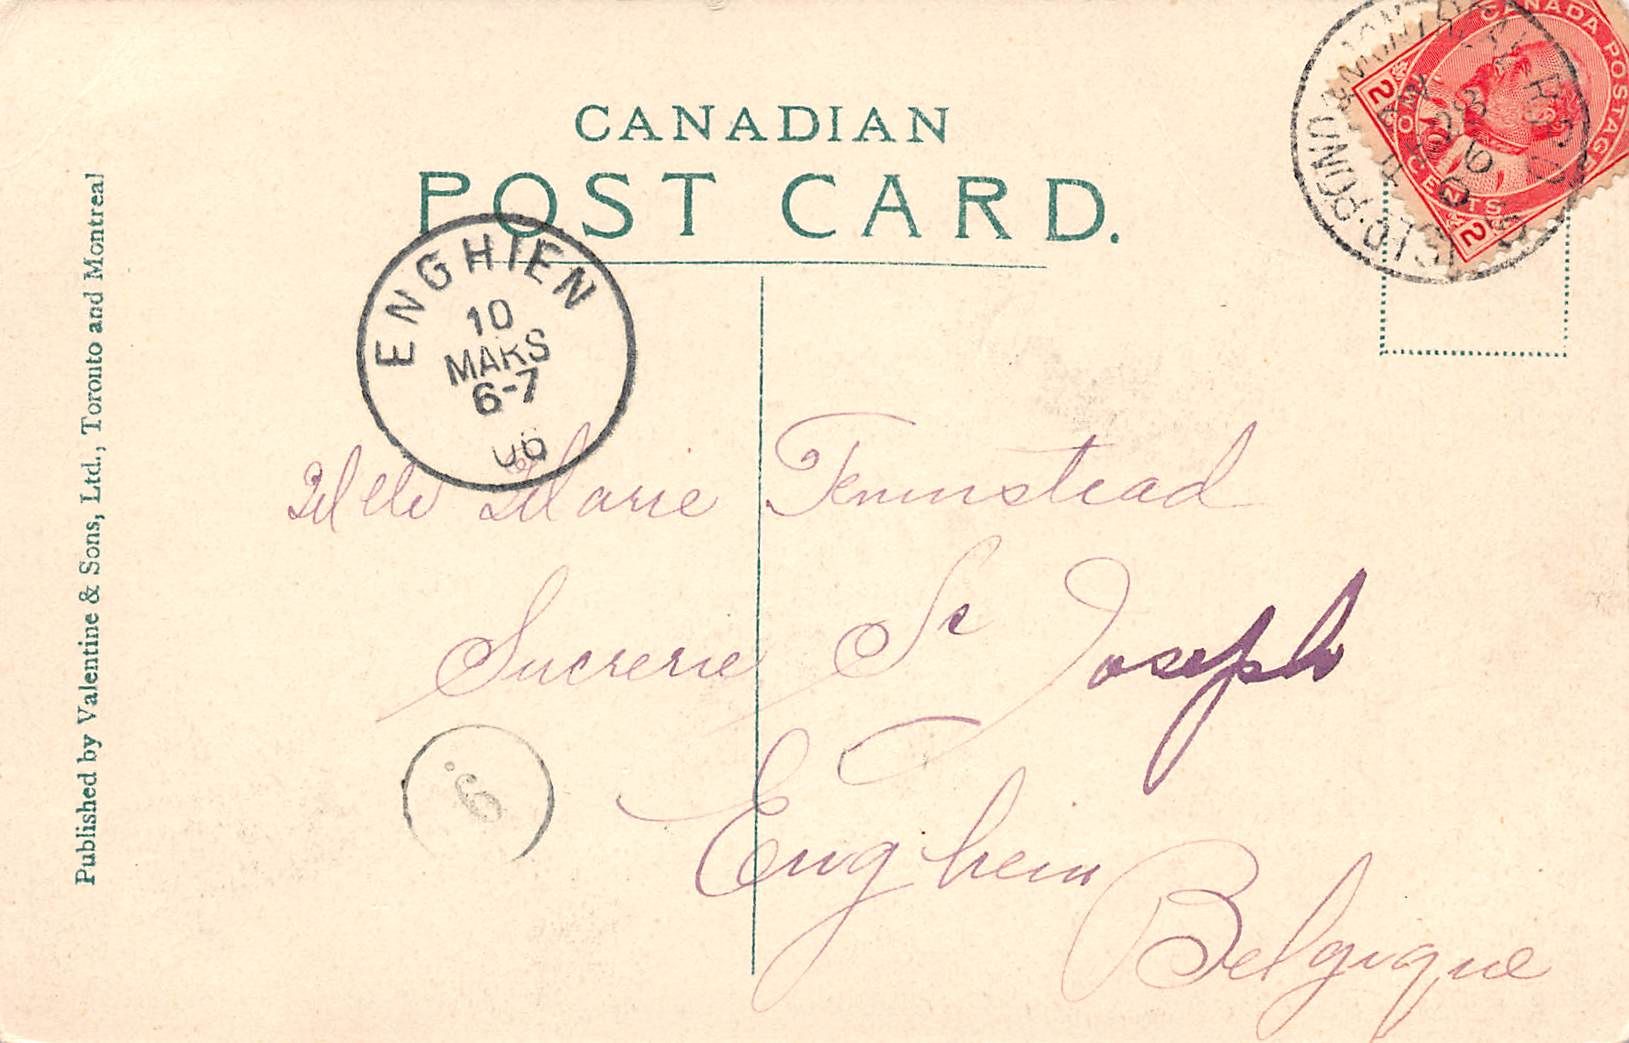 CANADIAN
POST CARD.
Published by Valentine & Sons, Ltd., Toronto and Montreal
CANADA POSTAGE
2 CENTS 2
ENGHIEN
10
MARS
6-7
06
Melle Marie
Sucrerie St Joseph
Enghein
Belgique
6